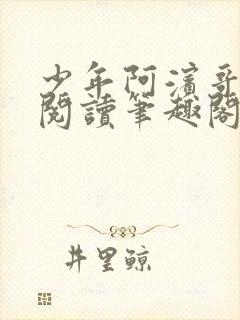 少年阿濱哥
閱讀筆趣閣
井里鯨